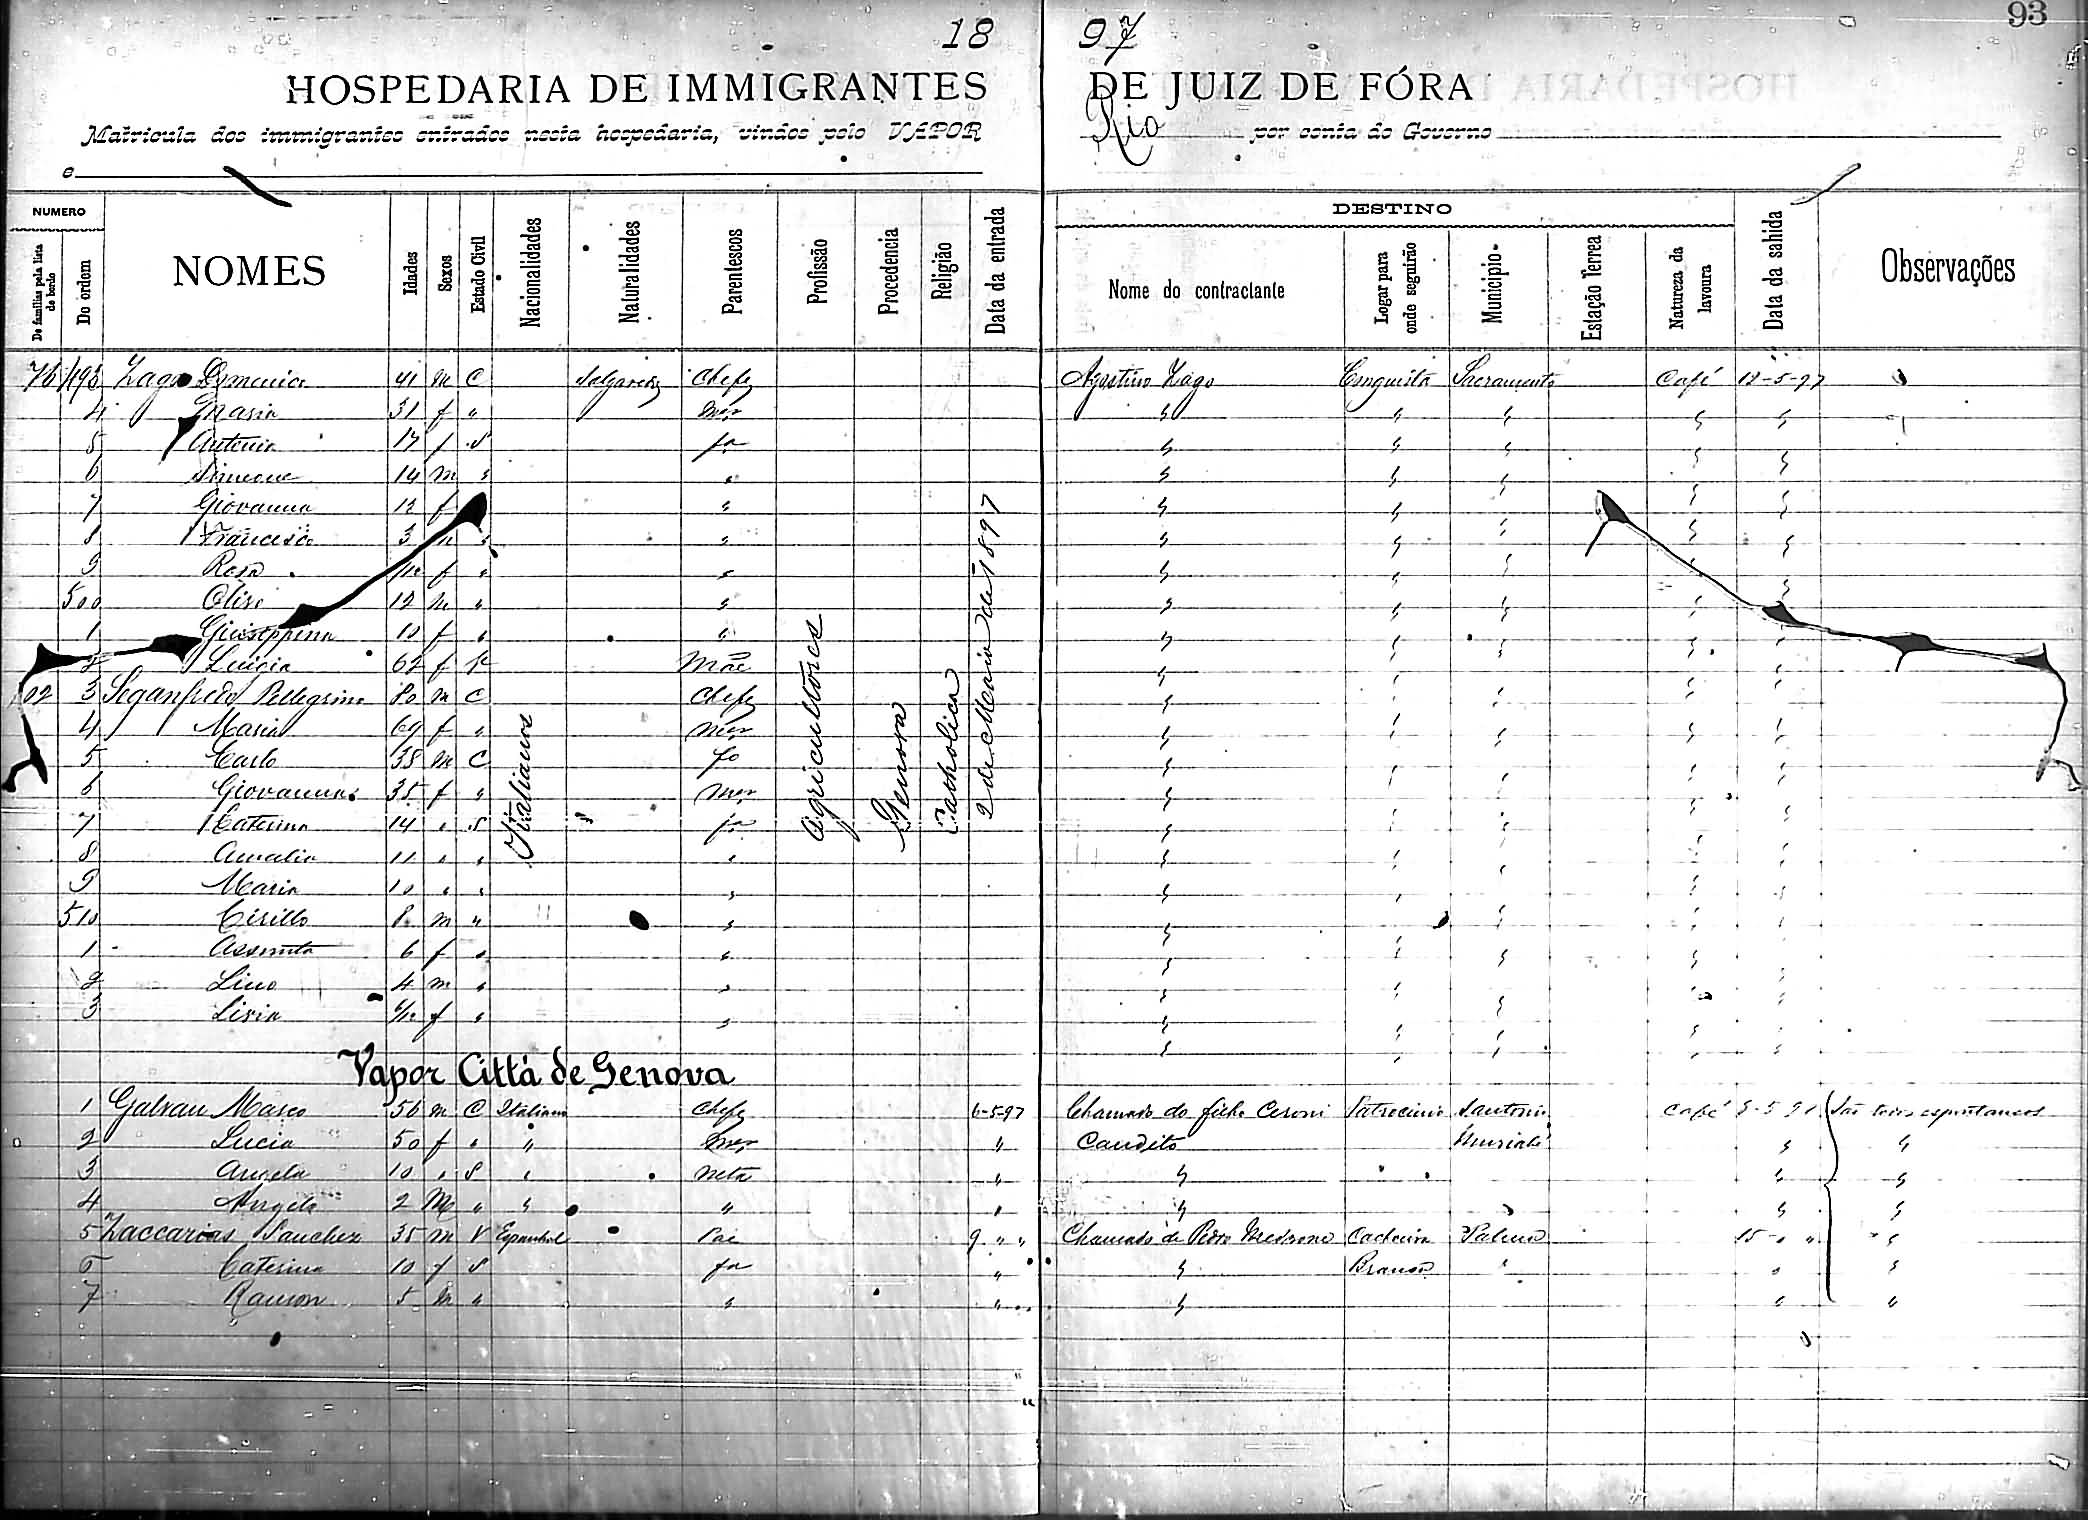 18 97
93
HOSPEDARIA DE IMMIGRANTES DE JUIZ DE FÓRA
Matricula dos immigrantes entrados nesta hospedaria, vindos pelo VAPOR Rio por conta do Governo
e
NUMERO
De familias pela lista de bordo
Do ordem
NOMES
Idades
Sexos
Estado Civil
Nacionalidades
Naturalidades
Parentescos
Profissão
Procedencia
Religião
Data da entrada
DESTINO
Nome do contractante
Logar para onde seguirão
Municipio
Estação Terrea
Natureza da lavoura
Data da sahida
Observações
Italianos
Agricultores
Genova
Catholica
2 de Maio de 1897
76 493 Zago Domenico 41 m C Chefe Agostino Zago Conquista Sacramento Café 12-5-97
4 Maria 31 f " mer " " " " "
5 Antonia 17 f S fa " " " " "
6 Simeone 14 m " " " " " " "
7 Giovanna 12 f " " " " " "
8 Francesco 3 m " " " " " " "
9 Rosa f " " " " " " "
500 Oliso 12 m " " " " " " "
1 Giuseppina 10 f " " " " " " "
2 Lucia 62 f Mãe " " " " "
102 3 Seganfredo Pellegrino 80 m C Chefe " " " " "
4 Maria 69 f " mer " " " " "
5 Carlo 38 m C fo " " " " "
6 Giovanna 35 f " mer " " " " "
7 Caterina 14 " S fa " " " " "
8 Amalia 11 " " " " " " " "
9 Maria 10 " " " " " " " "
510 Cirillo 8 m " " " " " " "
1 Assunta 6 f " " " " " " "
2 Lino 4 m " " " " " " "
3 Livia f " " " " " " "
Vapor Città de Genova
1 Galvan Marco 56 m C Italiano Chefe 6-5-97 Chamado do filho Ceroni Patrocinio Café São todos espontaneos
2 Lucia 50 f " " mer " Candito Muriahé " "
3 Angela 10 " S " neta " " " "
4 Angelo 2 M " " " " " " "
5 Zaccarias Sanchez 35 m V Espanhol Pai 9 " " Chamado de Pedro Cachoeira Palma 15 " " "
6 Caterina 10 f S fa " " " " "
7 Ramon 5 m " " " " " "